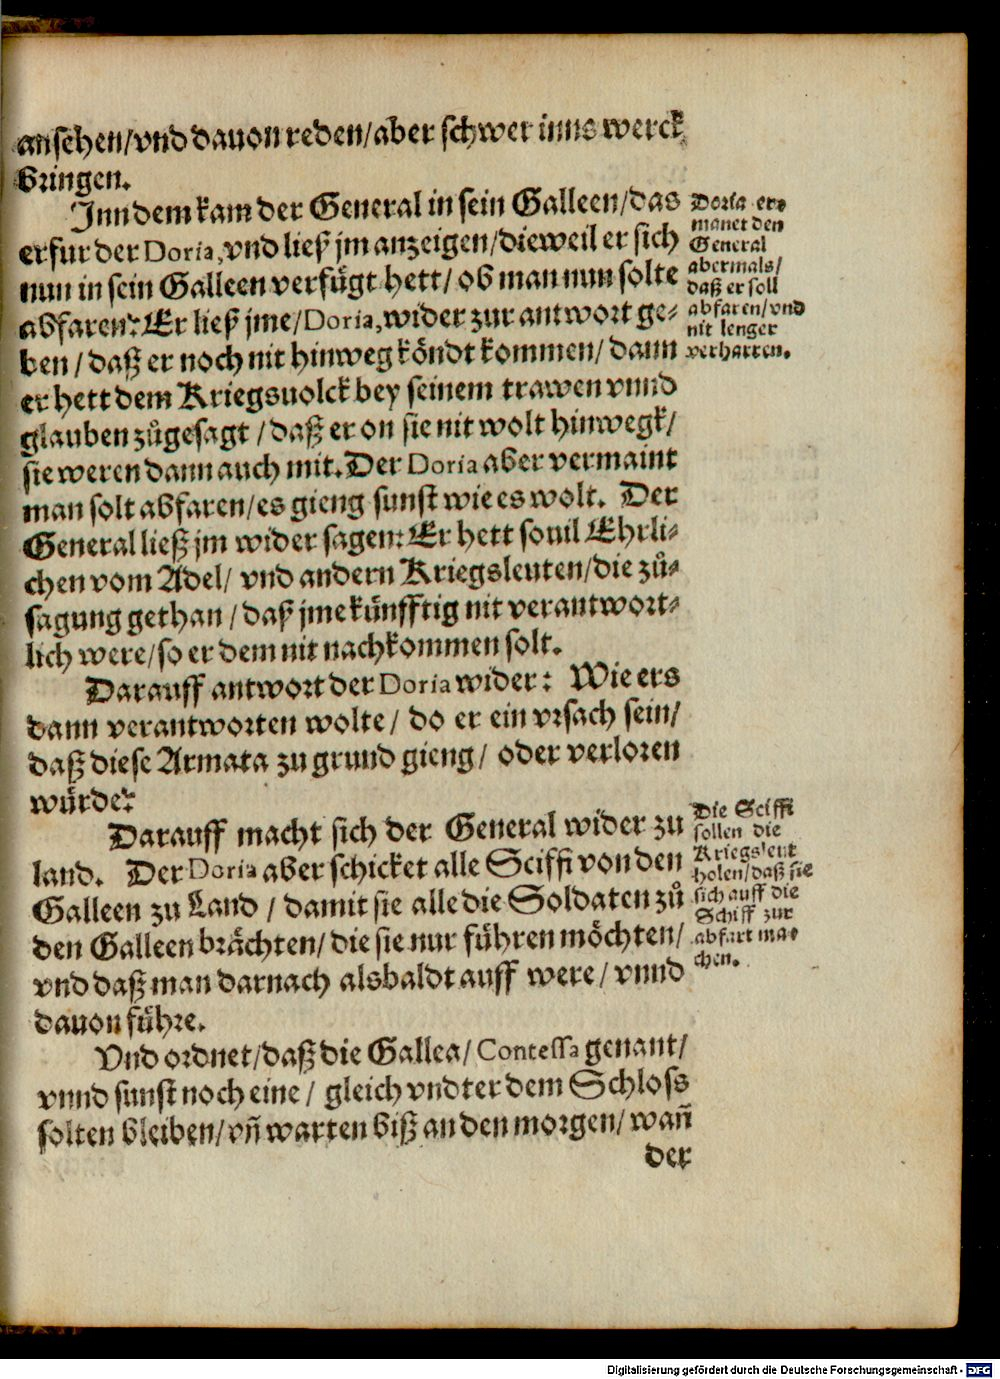 ansehen/vnd dauon reden/aber schwer inns werck
bringen.
Inn dem kam der General in sein Galleen/das
erfur der Doria, vnd ließ jm anzeigen/dieweil er sich
nun in sein Galleen verfügt hett/ ob man nun solte
abfaren? Er ließ jme/Doria, wider zur antwort ge-
ben/daß er noch nit hinweg köndt kommen/dann
er hett dem Kriegsuolck bey seinem trawen vnnd
glauben zůgesagt/daß er on sie nit wolt hinwegk/
sie weren dann auch mit. Der Doria aber vermaint
man solt abfaren/es gieng sunst wie es wolt. Der
General ließ jm wider sagen: Er hett souil Ehrli-
chen vom Adel/ vnd andern Kriegsleuten/die zů-
sagung gethan/daß jme künfftig nit verantwort-
lich were/so er dem nit nachkommen solt.
Darauff antwort der Doria wider: Wie ers
dann verantworten wolte/ do er ein vrsach sein/
daß diese Armata zu grund gieng/ oder verloren
würde?
Darauff macht sich der General wider zu
land. Der Doria aber schicket alle Sciffi von den
Galleen zu Land/damit sie alle die Soldaten zů
den Galleen brächten/die sie nur führen möchten/
vnd daß man darnach alsbaldt auff were/ vnnd
dauon führe.
Vnd ordnet/daß die Gallea/Contessa genant/
vnnd sunst noch eine/ gleich vndter dem Schloss
solten bleiben/vñ warten biß an den morgen/wañ
der
Doria er-
manet den
General
abermals/
daß er soll
abfaren/vnd
nit lenger
verharren.
Die Sciffi
sollen die
Kriegsleut
holen/daß sie
sich auff die
Schiff zur
abfart ma-
chen.
Digitalisierung gefördert durch die Deutsche Forschungsgemeinschaft - DFG